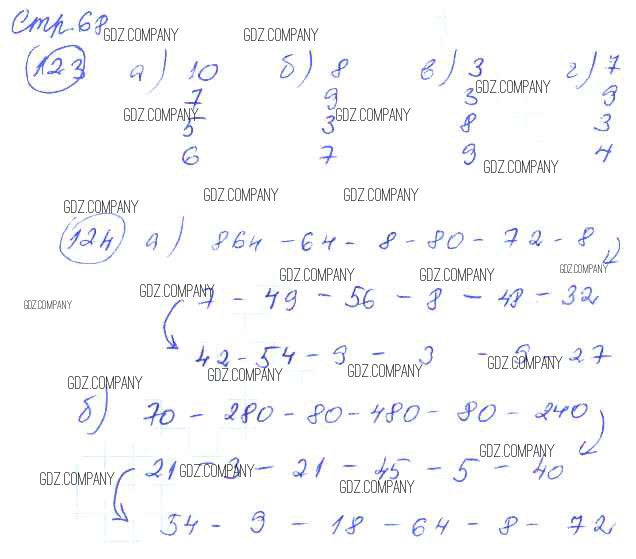 Стр. 68
GDZ.COMPANY GDZ.COMPANY
123 а) 10 б) 8 в) 3 г) 7
GDZ.COMPANY
7 9 3 9
GDZ.COMPANY GDZ.COMPANY
5 3 8 3
6 7 9 4
GDZ.COMPANY
GDZ.COMPANY GDZ.COMPANY
GDZ.COMPANY
124 а) 864 - 64 - 8 - 80 - 72 - 8
GDZ.COMPANY GDZ.COMPANY GDZ.COMPANY
GDZ.COMPANY GDZ.COMPANY
7 - 49 - 56 - 8 - 48 - 32
42 - 54 - 9 - 3 - 9 - 27
GDZ.COMPANY GDZ.COMPANY GDZ.COMPANY
GDZ.COMPANY
б) 70 - 280 - 80 - 480 - 80 - 240
GDZ.COMPANY
21 - 3 - 21 - 45 - 5 - 40
GDZ.COMPANY GDZ.COMPANY GDZ.COMPANY
54 - 9 - 18 - 64 - 8 - 72